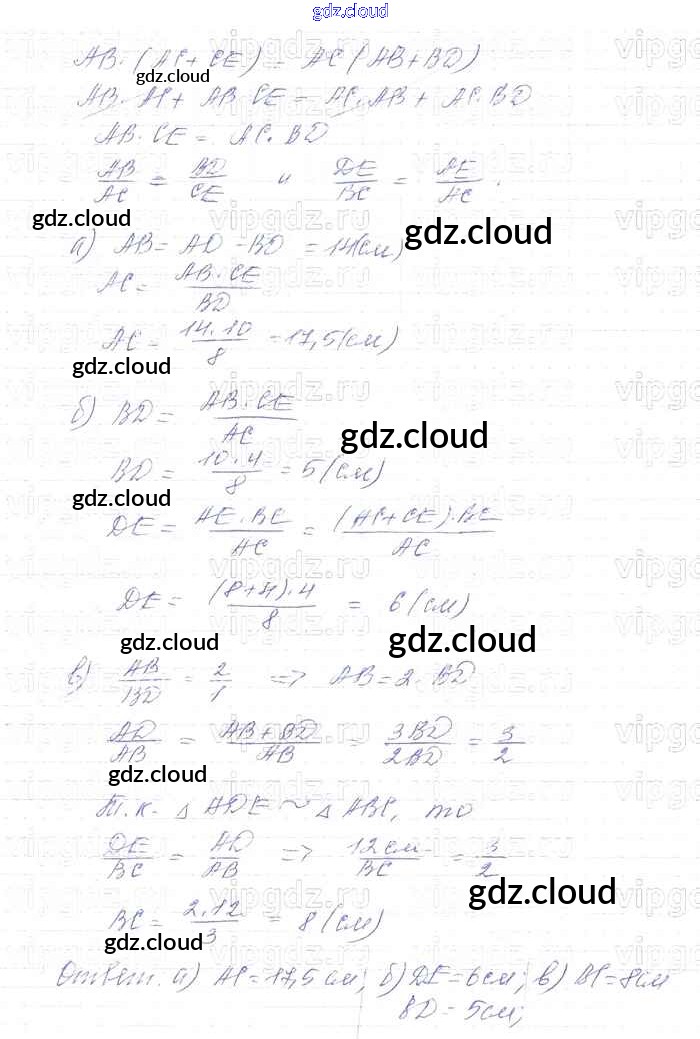 gdz.cloud
AB·(AC+CE) = AC(AB+BD)
gdz.cloud
AB·AC + AB·CE = AC·AB + AC·BD
AB·CE = AC·BD
AB/AC = BD/CE и DE/BC = AE/AC.
gdz.cloud
gdz.cloud
а) AB = AD - BD = 14(см)
AC = AB·CE/BD
AC = 14·10/8 = 17,5(см)
gdz.cloud
б) BD = AB·CE/AC
gdz.cloud
BD = 10·4/8 = 5(см)
gdz.cloud
DE = AE·BC/AC = (AC+CE)·BC/AC
DE = (8+4)·4/8 = 6(см)
gdz.cloud
gdz.cloud
в) AB/BD = 2/1 => AB = 2·BD
AD/AB = AB+BD/AB = 3BD/2BD = 3/2
gdz.cloud
Т.к. △ADE ~ △ABC, то
DE/BC = AD/AB => 12см/BC = 3/2
gdz.cloud
BC = 2·12/3 = 8(см)
gdz.cloud
Ответ: а) AC = 17,5 см; б) DE = 6см; в) BC = 8см
BD = 5см;